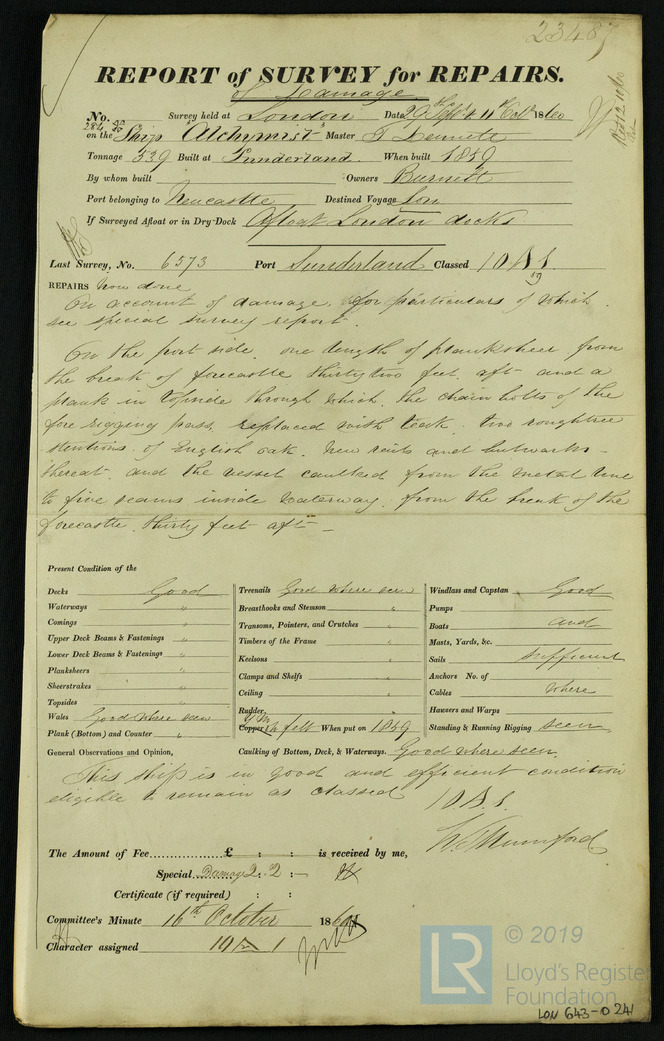 23487
REPORT of SURVEY for REPAIRS.
of Damage
No. 284 Survey held at London Date 29th Septr & 11th Octr 1860
on the Ship "Alchymist" Master T Dennett
Tonnage 539 Built at Sunderland. When built 1859
By whom built Owners Burnett
Port belonging to Newcastle Destined Voyage
If Surveyed Afloat or in Dry-Dock Afloat London docks
Last Survey, No. 6573 Port Sunderland Classed 10 A 1
59
REPAIRS Now done
On account of damage, for particulars of which
see special survey report.
On the port side, one length of planksheer from
the break of forecastle thirty two feet aft and a
plank in topside through which the chain bolts of the
fore rigging pass, replaced with teak. two roughtree
stentions of English oak. New rails and bulwarks
thereat. and the vessel caulked from the metal line
to five seams inside waterway, from the break of the
forecastle thirty feet aft
Present Condition of the
Decks Good
Waterways "
Comings "
Upper Deck Beams & Fastenings "
Lower Deck Beams & Fastenings "
Planksheers "
Sheerstrakes "
Topsides "
Wales Good where seen
Plank (Bottom) and Counter "
Treenails Good where seen
Breasthooks and Stemson "
Transoms, Pointers, and Crutches "
Timbers of the Frame "
Keelsons "
Clamps and Shelfs "
Ceiling "
Rudder,
Copper Y M felt When put on 1859
Windlass and Capstan Good
Pumps
Boats and
Masts, Yards, &c.
Sails sufficient
Anchors No. of
Cables where
Hawsers and Warps
Standing & Running Rigging seen
General Observations and Opinion, Caulking of Bottom, Deck, & Waterways. Good where seen.
This ship is in good and efficient condition
eligible to remain as classed 10 A 1.
The Amount of Fee £ : : is received by me,
Special Damage 2 : 2 : -
Certificate (if required) : :
Committee's Minute 16th October 1860
Character assigned 10 A 1
© 2019
LR
Lloyd's Register
Foundation
LON 643-0241